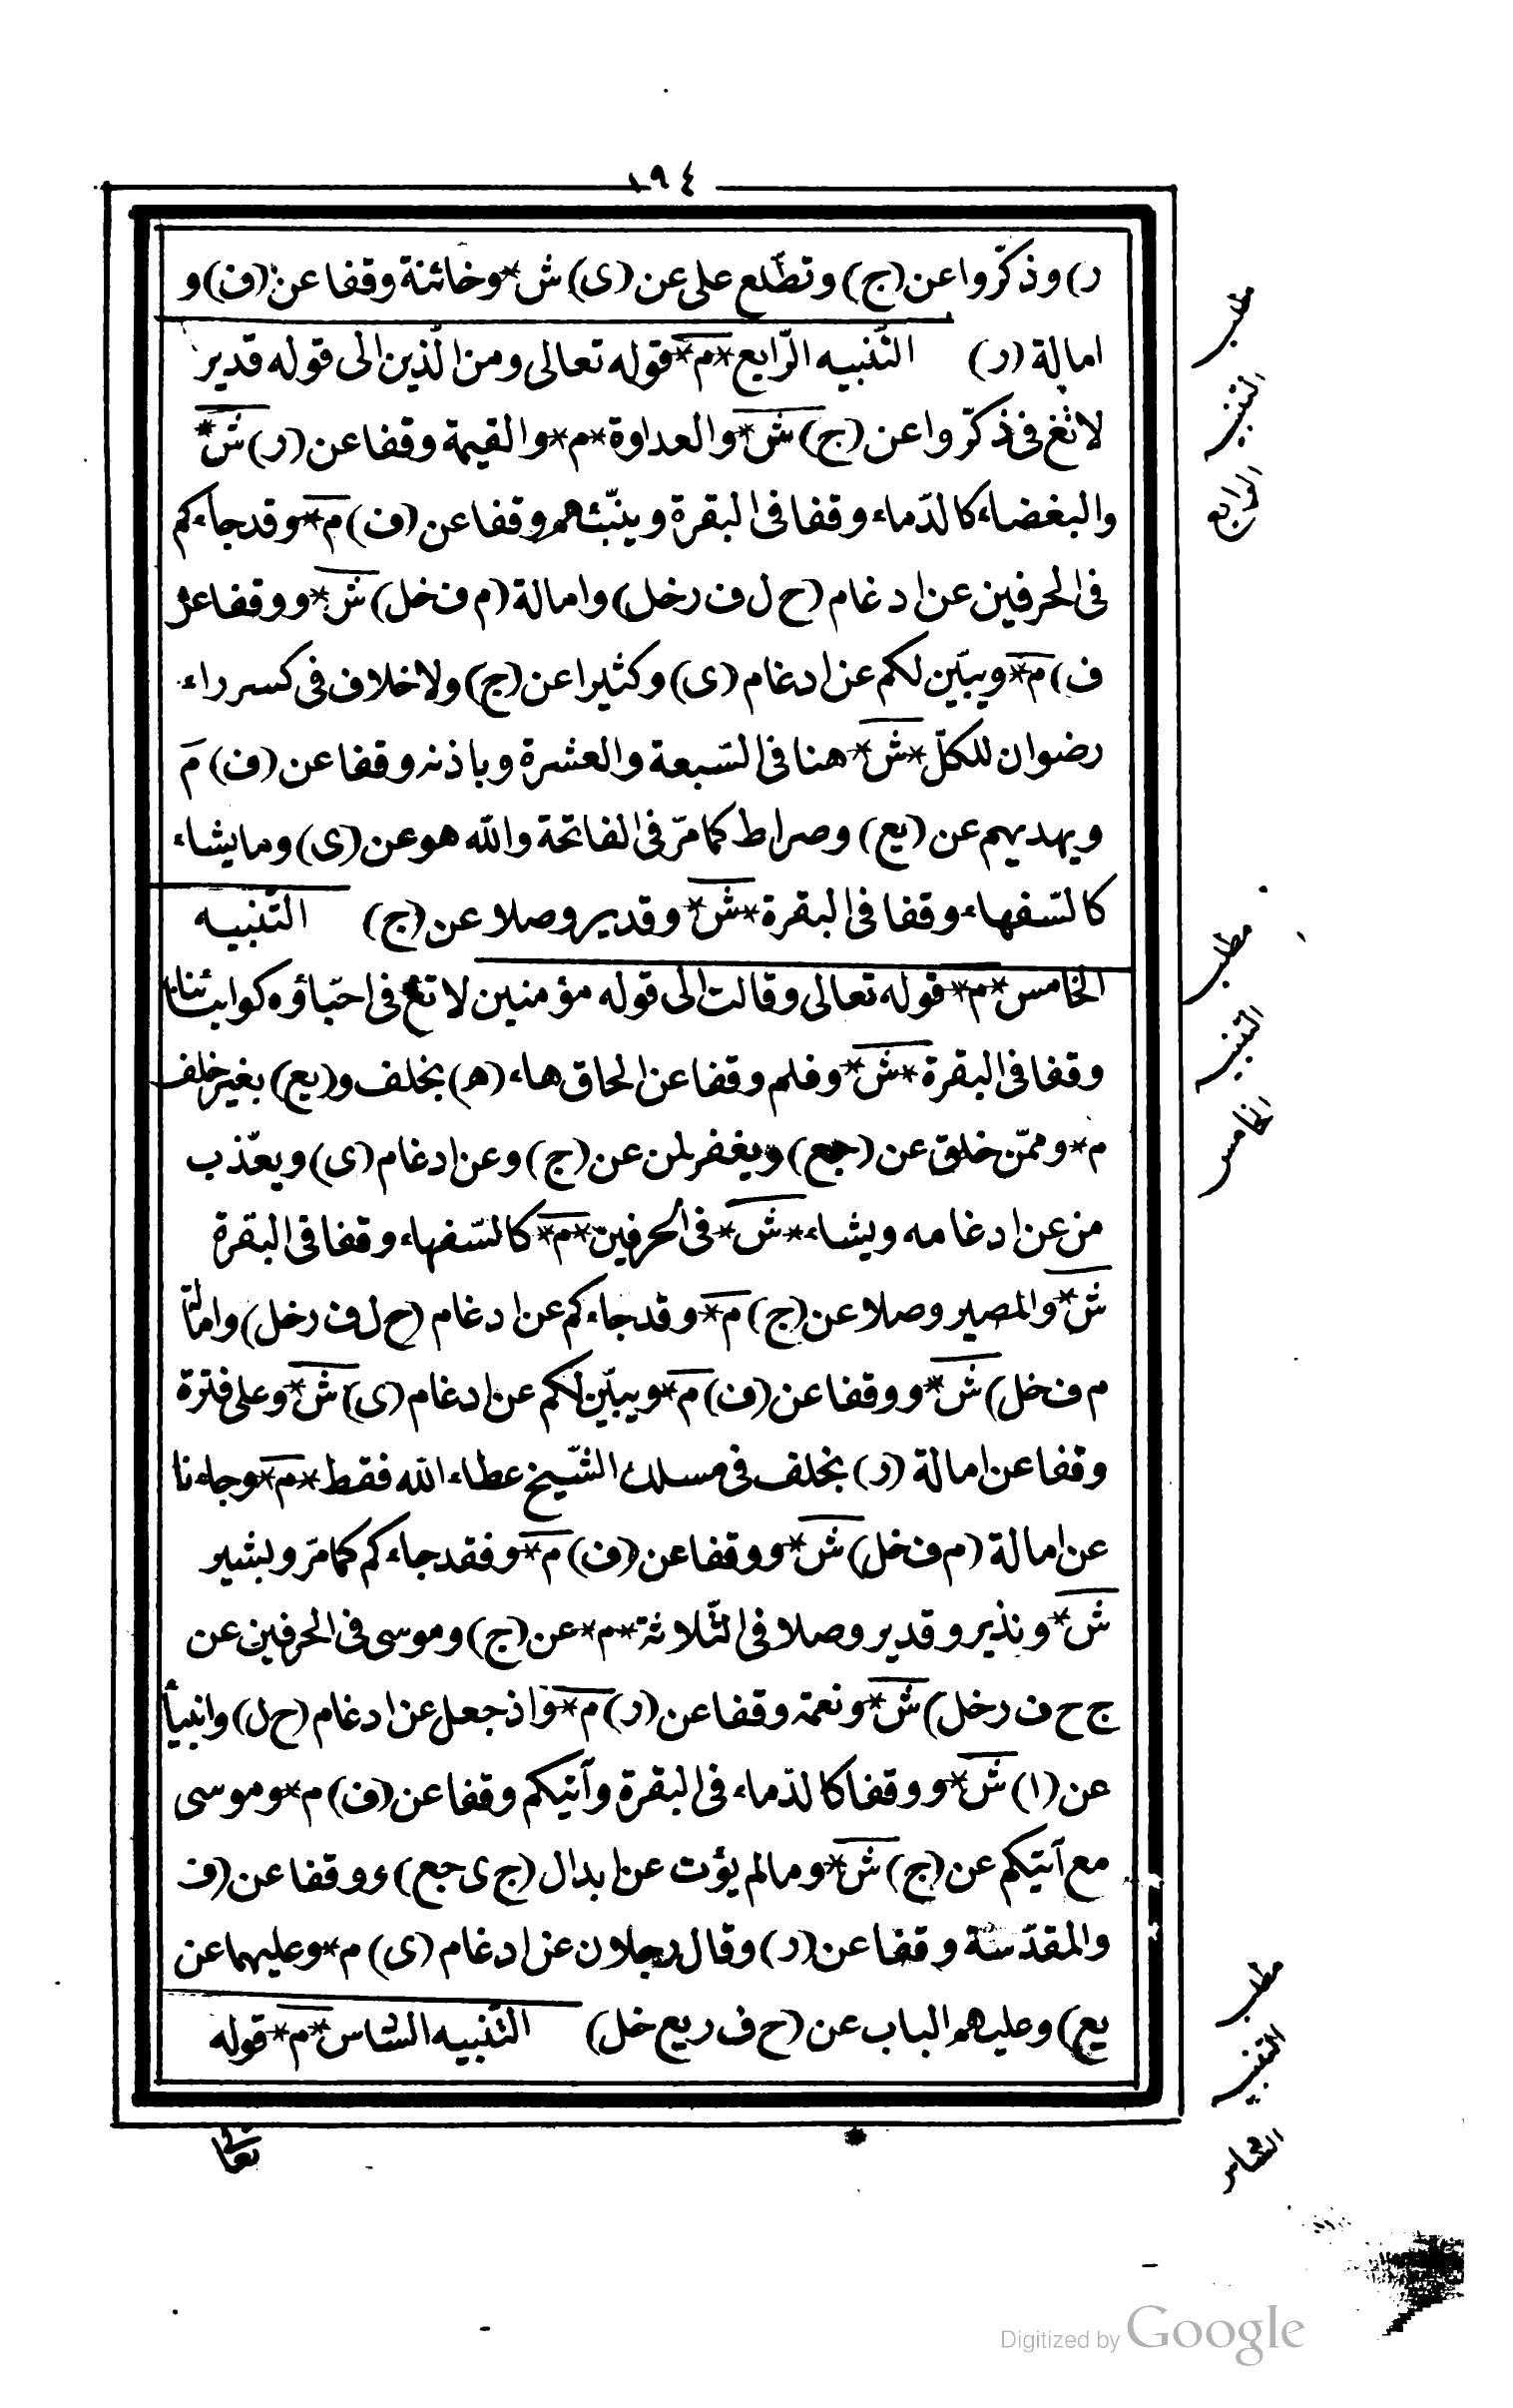 ١٩٤
ر) وذكّروا عن (ج) وتطّلع على عن (ى) ش * وخائنة وقفا عن (ف) و
امالة (ر) التّنبيه الرّابع * م * قوله تعالى ومن الّذين الى قوله قدير
لاتغ فى ذكّروا عن (ج) ش * والعداوة * م * والقيمة وقفا عن (ر) ش *
والبغضاء كالدّماء وقفا فى البقرة وينبّئهم وقفا عن (ف) م * وقد جاءكم
فى الحرفين عن ادغام (ح ل ف رخل) وامالة (م ف خل) ش * ووقفا عن
ف) م * ويبيّن لكم عن ادغام (ى) وكثيرا عن (ج) ولا خلاف فى كسر راء
رضوان للكلّ * ش * هنا فى السّبعة والعشرة وباذنه وقفا عن (ف) م
ويهديهم عن (يع) وصراط كما مرّ فى الفاتحة والله هو عن (ى) وما يشاء
كالسّفهاء وقفا فى البقرة * ش * وقدير وصلا عن (ج) التّنبيه
الخامس * م * قوله تعالى وقالت الى قوله مؤمنين لا تغ فى احبّاؤه كوابناء
وقفا فى البقرة * ش * وفلم وقفا عن الحاق هاء (ه) بخلف و (يع) بغير خلف
م * وممّن خلق عن (جع) ويغفر لمن عن (ج) وعن ادغام (ى) ويعذّب
من عن ادغامه ويشاء * ش * فى الحرفين * م * كالسّفهاء وقفا فى البقرة
ش * والمصير وصلا عن (ج) م * وقد جاءكم عن ادغام (ح ل ف رخل) وامالة
م ف خل) ش * ووقفا عن (ف) م * ويبيّن لكم عن ادغام (ى) ش * وعلى فترة
وقفا عن امالة (ر) بخلف فى مسلك الشّيخ عطاء الله فقط * م * وجاءنا
عن امالة (م ف خل) ش * ووقفا عن (ف) م * وفقد جاءكم كما مرّ وبشير
ش * ونذير وقدير وصلا فى الثّلاثة * م * عن (ج) وموسى فى الحرفين عن
ج ح ف رخل) ش * ونعمة وقفا عن (ر) م * واذ جعل عن ادغام (ح ل) وانبيأ
عن (ا) ش * ووقفا كالدّماء فى البقرة وآتيكم وقفا عن (ف) م * وموسى
مع آتيكم عن (ج) ش * وما لم يؤت عن ابدال (ج ى جع) ووقفا عن (ف
والمقدّسة وقفا عن (ر) وقال رجلان عن ادغام (ى) م * وعليهما عن
يع) وعليهم الباب عن (ح ف ريع خل) التّنبيه السّادس * م * قوله
تعالى
مطلب
التنبيه
الرابع
مطلب
التنبيه
الخامس
مطلب
التنبيه
Digitized by Google